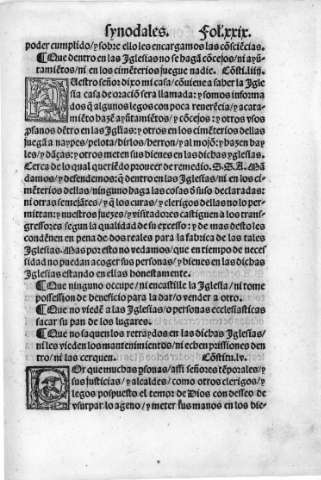 synodales. Fol.xxix.
poder cumplido/y sobre ello les encargamos las cōsciēcias.
¶ Que dentro en las Iglesias no se hagā cōcejos/ni ayū-
tamiētos/ni en los cimēterios juegue nadie. Cōsti.liiij.
Nuestro señor dixo mi casa/cōuiene a saber la Igle
sia casa de oraciō sera llamada:y somos informa
dos q̄ algunos legos con poca reuerēcia/y acata-
miēto hazē ayūtamiētos/y cōcejos: y otros vsos
psanos dētro en las Iglias:y otros en los cimēterios dellas
juegā a naypes/pelota/birlos/herron/y al mojō:y hazen bay
les/y dāças:y otros meten sus bienes en las dichas yglesias.
Cerca de lo qual queriēdo proueer de remedio. S.S.A. Mā
damos/y defendemos:q̄ dentro en las Iglesias/ni en los ci-
mēterios dellas/ninguno haga las cosas ō suso declaradas:
ni otras semejātes/y q̄ los curas/y clerigos dellas no lo per-
mitan:y nuestros juezes/y visitadores castiguen a los trans-
gressores segun la qualidad de su excesso: y de mas desto los
condēnen en pena de dos reales para la fabrica de las tales
Iglesias. Mas por esto no vedamos/que en tiempo de neces
sidad no puedan acoger sus personas/y bienes en las dichas
Iglesias estando en ellas honestamente.
¶ Que ninguno occupe/ni encastille la Iglesia/ni tome
possession de beneficio para la dar/o vender a otro.
¶ Que no viedē a las Iglesias/o personas ecclesiasticas
sacar su pan de los lugares.
¶ Que no saquen los retraydos en las dichas Iglesias/
ni les vieden los mantenimientos/ni echen prissiones den
tro/ni las cerquen. Cōstitu.lv.
Por que muchas psonas/assi señores tēporales/y
sus justicias/y alcaldes/como otros clerigos/y
legos pospuesto el temor de Dios con desseo de
vsurpar lo ageno/y meter sus manos en los die-